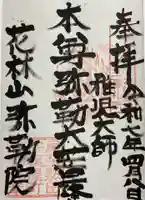 奉拝
令和七年四月八日
稚児大師
本尊弥勒大菩薩
花林山弥勒院